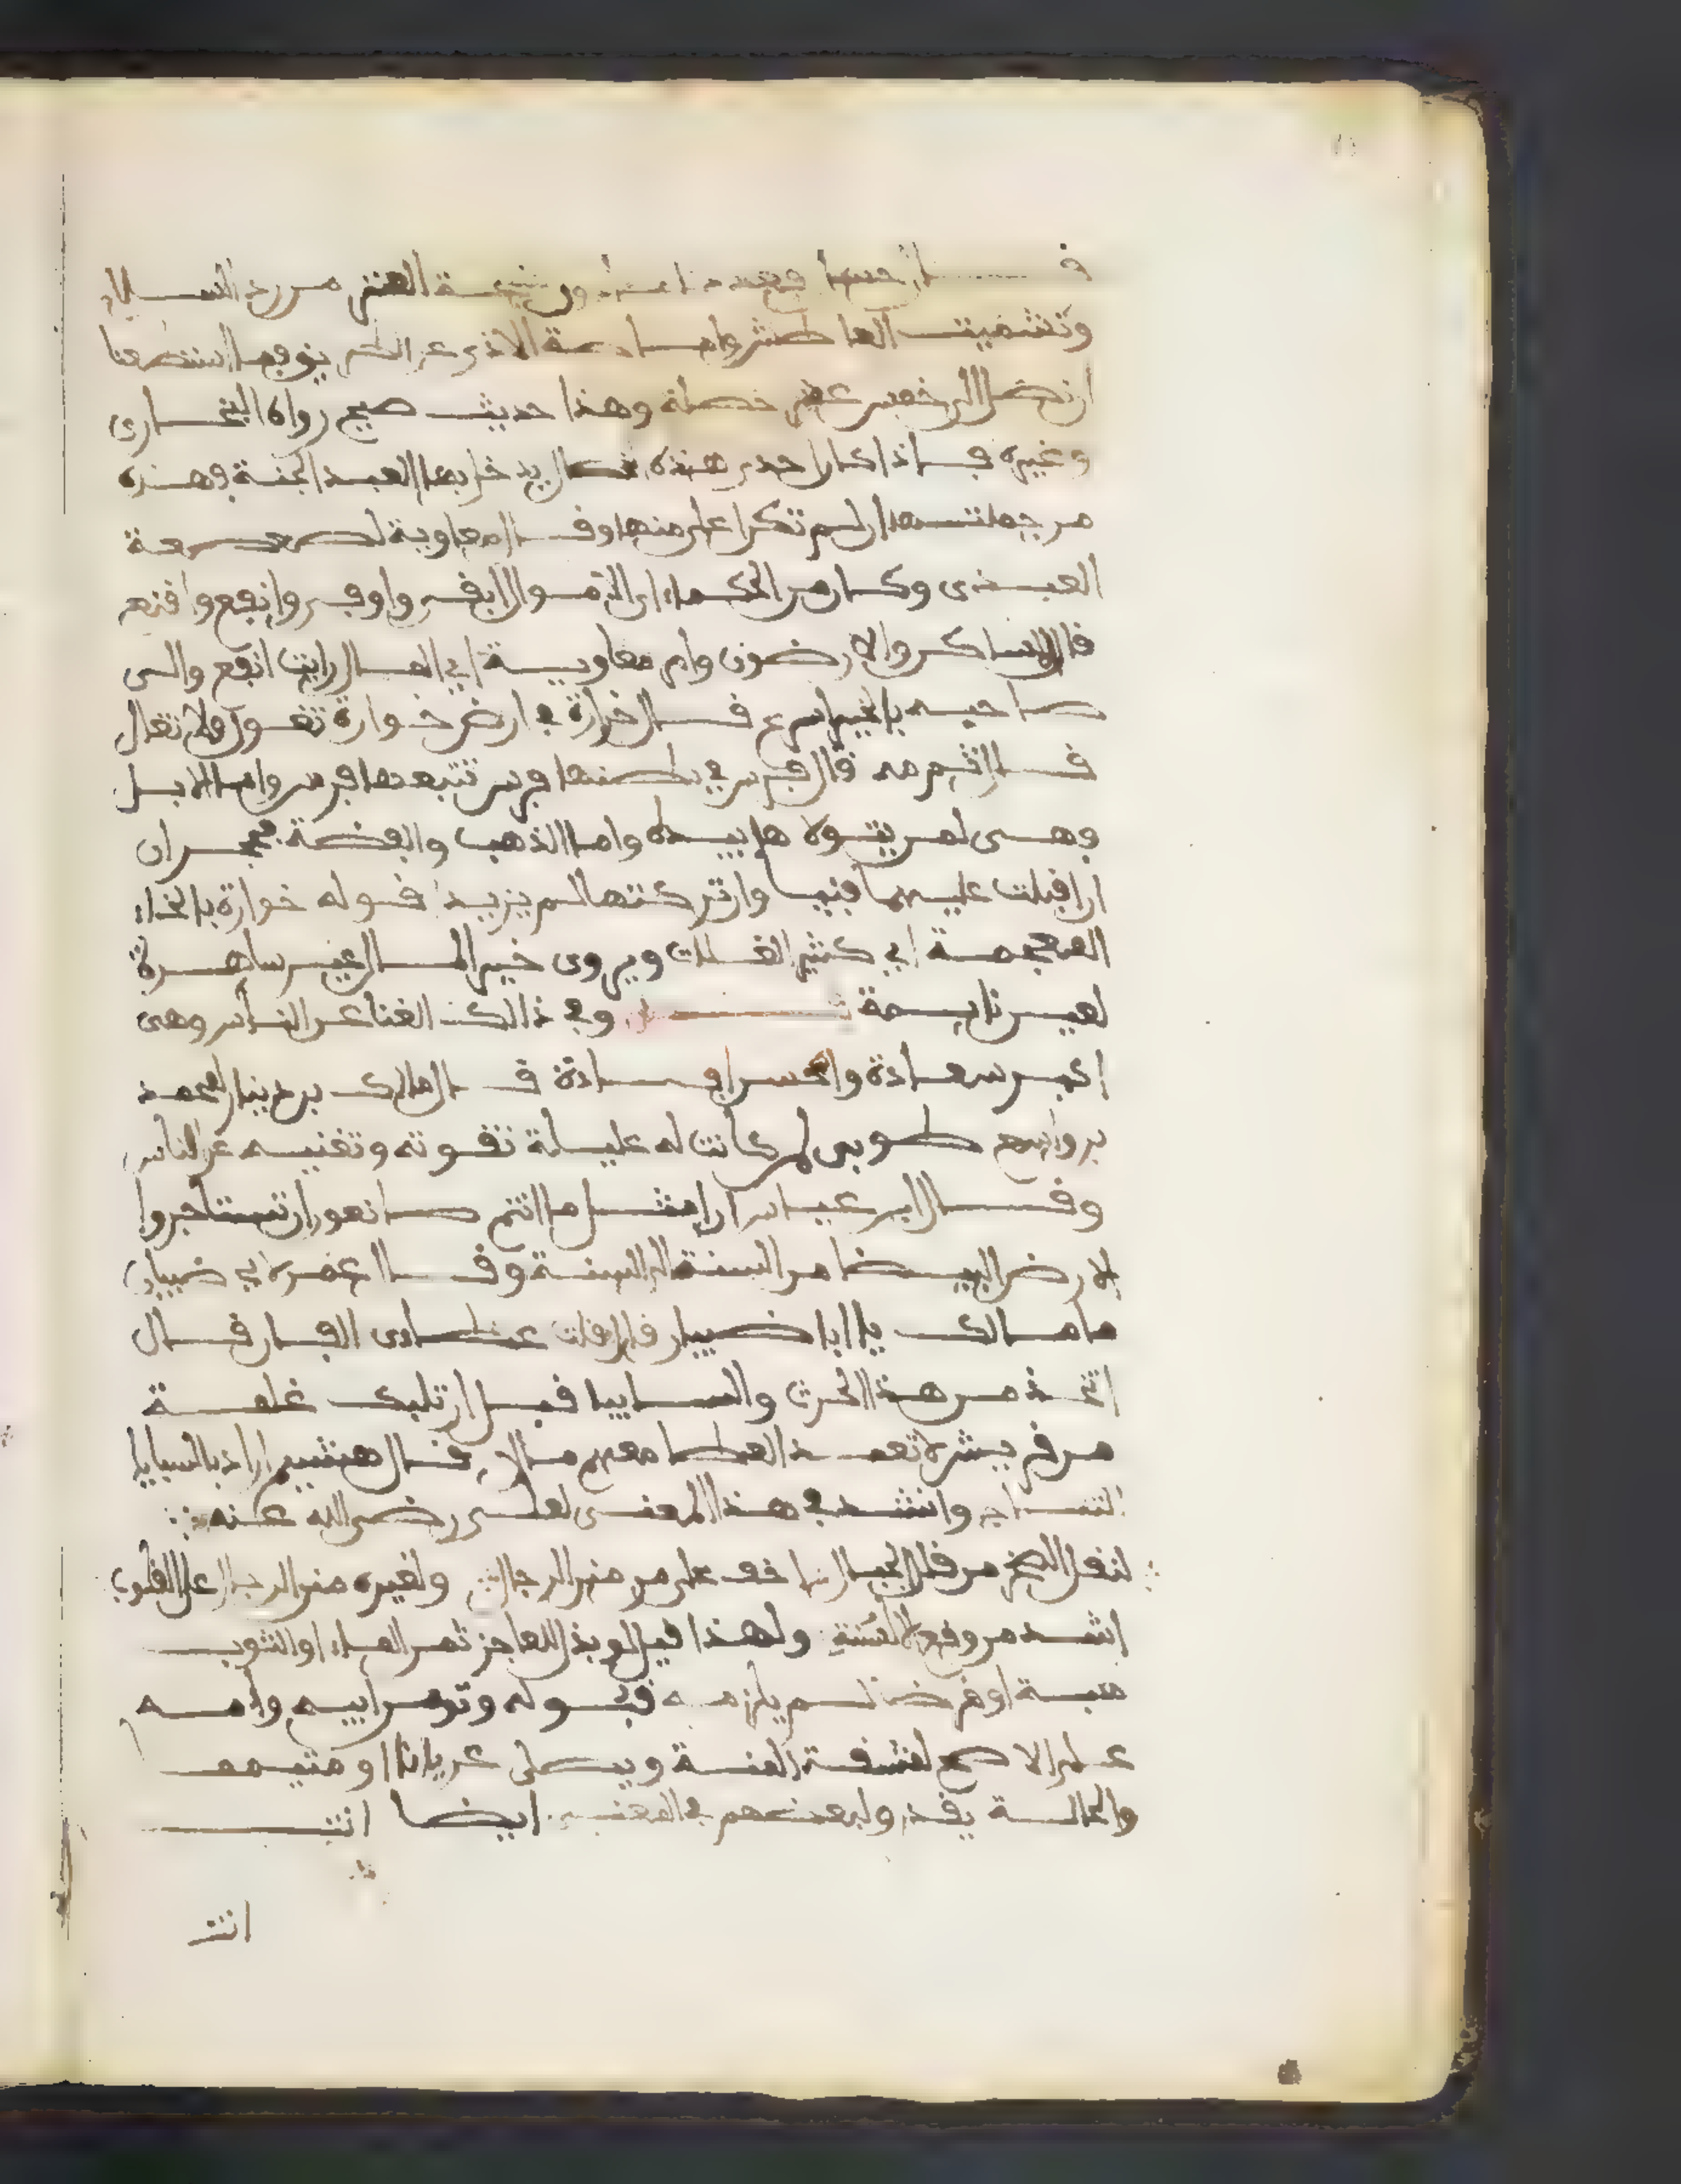 قال حسان فعددنا ما دون منيحة العنز من رد السلام
وتشميت العاطش واماطة الاذى عن الطريق فما استطعنا
ان نصل الى خمس عشر خصلة وهذا حديث صحيح رواه البخارى
وغيره فاذا كان احدى هذه خصال يدخل بها العبد الجنة فهذه
من جملتها ان لم تكن اعلى منها وقال معاوية لصعصعة
العبدى وكان من الحكماء اى الاموال ابقى واوفر وانفع وامنع
قال المساكن والارضون وام معاوية اي المال رايت انفع والى
صاحبه بالخير اسرع قال خرارة في ارض خوارة تعول ولا تعال
قال ثم مه قال فرس في بطنها فرس تتبعها فرس واما الابل
وهى لمن يتولاها بيده واما الذهب والفضة فحجران
ان اقبلت عليهما فنيا وان تركتهما لم يزيدا قوله خوارة بالخاء
المعجمة اي كثير الغلات ويروى خير المال عين ساهرة
لعين نايمة وفي ذالك الغنا عن الناس وهى
اكبر سعادة واحسن افادة قال مالك بن دينار لمحمد
بن واسع طوبى لمن كانت له عليلة تقوته وتغنيه عن الناس
وقال ابن عباس ان امثل ما انتم صانعون ان تستاجروا
الارض البيضا من السنة الى السنة وقال عمر لابي ضبيان
ما مالك يا ابا ضبيان قال قلت عطاءى الفان قال
اتخذ من هذا الحرث والسابيا قبل ان تليك غلمة
من قريش لا تعد العطا معهم مالا قال هشيم اراد بالسيايا
النتاج وانشد في هذا المعنى لعلى رضى الله عنه
لنقل الصخر من قلل الجبال احب على من منن الرجال ولغيره منن الرجال على القلوب
اشد من وقع الاسنة ولهذا قيل لو بذل للعاجز ثمن الماء او الثوب
هبة او قرضا لم يلزمه قبوله وثوهر ابيه وامه
على الاصح لمشقة المنة ويصلى عريانا او متيمم
والحالة يقد ولبعضهم في المعنى ايضا انتـ
انتـ